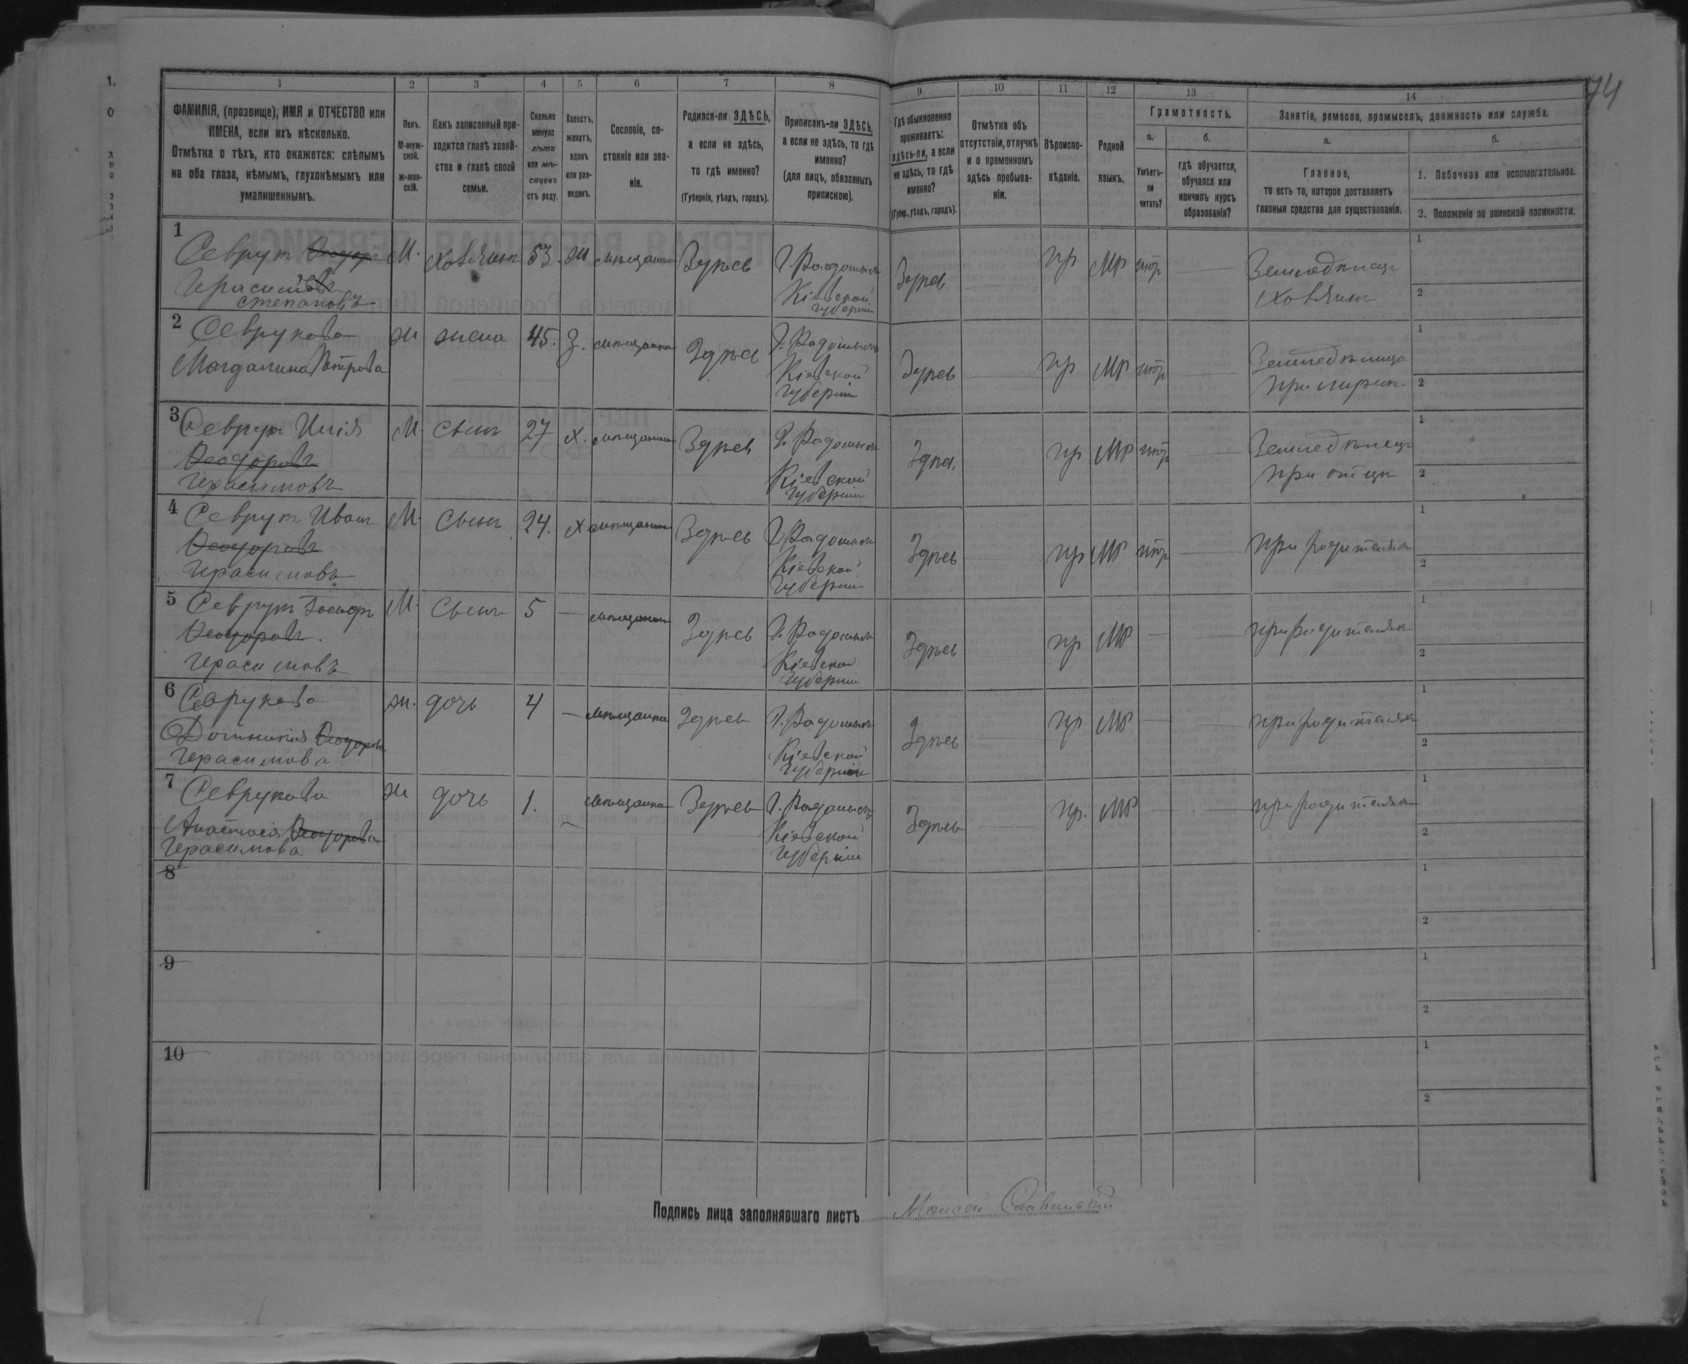 74
1 2 3 4 5 6 7 8 9 10 11 12 13 14
ФАМИЛІЯ, (прозвище), ИМЯ и ОТЧЕСТВО или
ИМЕНА, если ихъ нѣсколько.
Отмѣтка о тѣхъ, кто окажется: слѣпымъ
на оба глаза, нѣмымъ, глухонѣмымъ или
умалишеннымъ.
Полъ.
М-муж-
ской.
ж-жен-
скій.
Какъ записанный при-
ходится главѣ хозяй-
ства и главѣ своей
семьи.
Сколько
минуло
лѣтъ
или мѣ-
сяцевъ
отъ роду.
Холостъ,
женатъ,
вдовъ
или раз-
веденъ.
Сословіе, со-
стояніе или зва-
ніе.
Родился-ли ЗДѢСЬ,
а если не здѣсь,
то гдѣ именно?
(Губернія, уѣздъ, городъ).
Приписанъ-ли ЗДѢСЬ,
а если не здѣсь, то гдѣ
именно?
(для лицъ, обязанныхъ
припискою).
Гдѣ обыкновенно
проживаетъ:
здѣсь-ли, а если
не здѣсь, то гдѣ
именно?
(Губер., уѣздъ, городъ).
Отмѣтка объ
отсутствіи, отлучкѣ
и о временномъ
здѣсь пребыва-
ніи.
Вѣроиспо-
вѣданіе.
Родной
языкъ.
Грамотность.
а.
Умѣетъ-
ли
читать?
б.
гдѣ обучается,
обучался или
кончилъ курсъ
образованія?
Занятіе, ремесло, промыселъ, должность или служба.
а.
Главное,
то есть то, которое доставляетъ
главныя средства для существованія.
б.
1. Побочное или вспомогательное.
2. Положеніе по воинской повинности.
1
Севрук Феодор М. хозяинъ 53. ж мѣщанинъ Здѣсь Г. Радомысль Здѣсь пр МР нѣтъ Земледѣлецъ
Герасимъ Кіевской хозяинъ
Степановъ губерніи
2
Севрукова ж жена 45. З. мѣщанка Здѣсь Г. Радомысль Здѣсь пр МР нѣтъ Земледѣлица
Магдалина Петрова Кіевской при мужѣ
губерніи
3
Севрук Илія М. сынъ 27 х. мѣщанинъ Здѣсь Г. Радомысль Здѣсь пр МР нѣтъ Земледѣлецъ
Феодоровъ Кіевской при отцѣ
Герасимовъ губерніи
4
Севрук Иванъ М. сынъ 24. х мѣщанинъ Здѣсь Г. Радомысль Здѣсь пр МР нѣтъ при родителяхъ
Феодоровъ Кіевской
Герасимовъ губерніи
5
Севрук Іосифъ М. сынъ 5 мѣщанинъ Здѣсь Г. Радомысль Здѣсь пр МР при родителяхъ
Феодоровъ Кіевской
Герасимовъ губерніи
6
Севрукова ж. дочь 4 мѣщанка Здѣсь Г. Радомысль Здѣсь пр МР при родителяхъ
Доминикія Феодорова Кіевской
Герасимова губерніи
7
Севрукова ж дочь 1. мѣщанка Здѣсь Г. Радомысль Здѣсь пр. МР при родителяхъ
Анастасія Феодорова Кіевской
Герасимова губерніи
8
9
10
Подпись лица заполнявшаго листъ Моисей